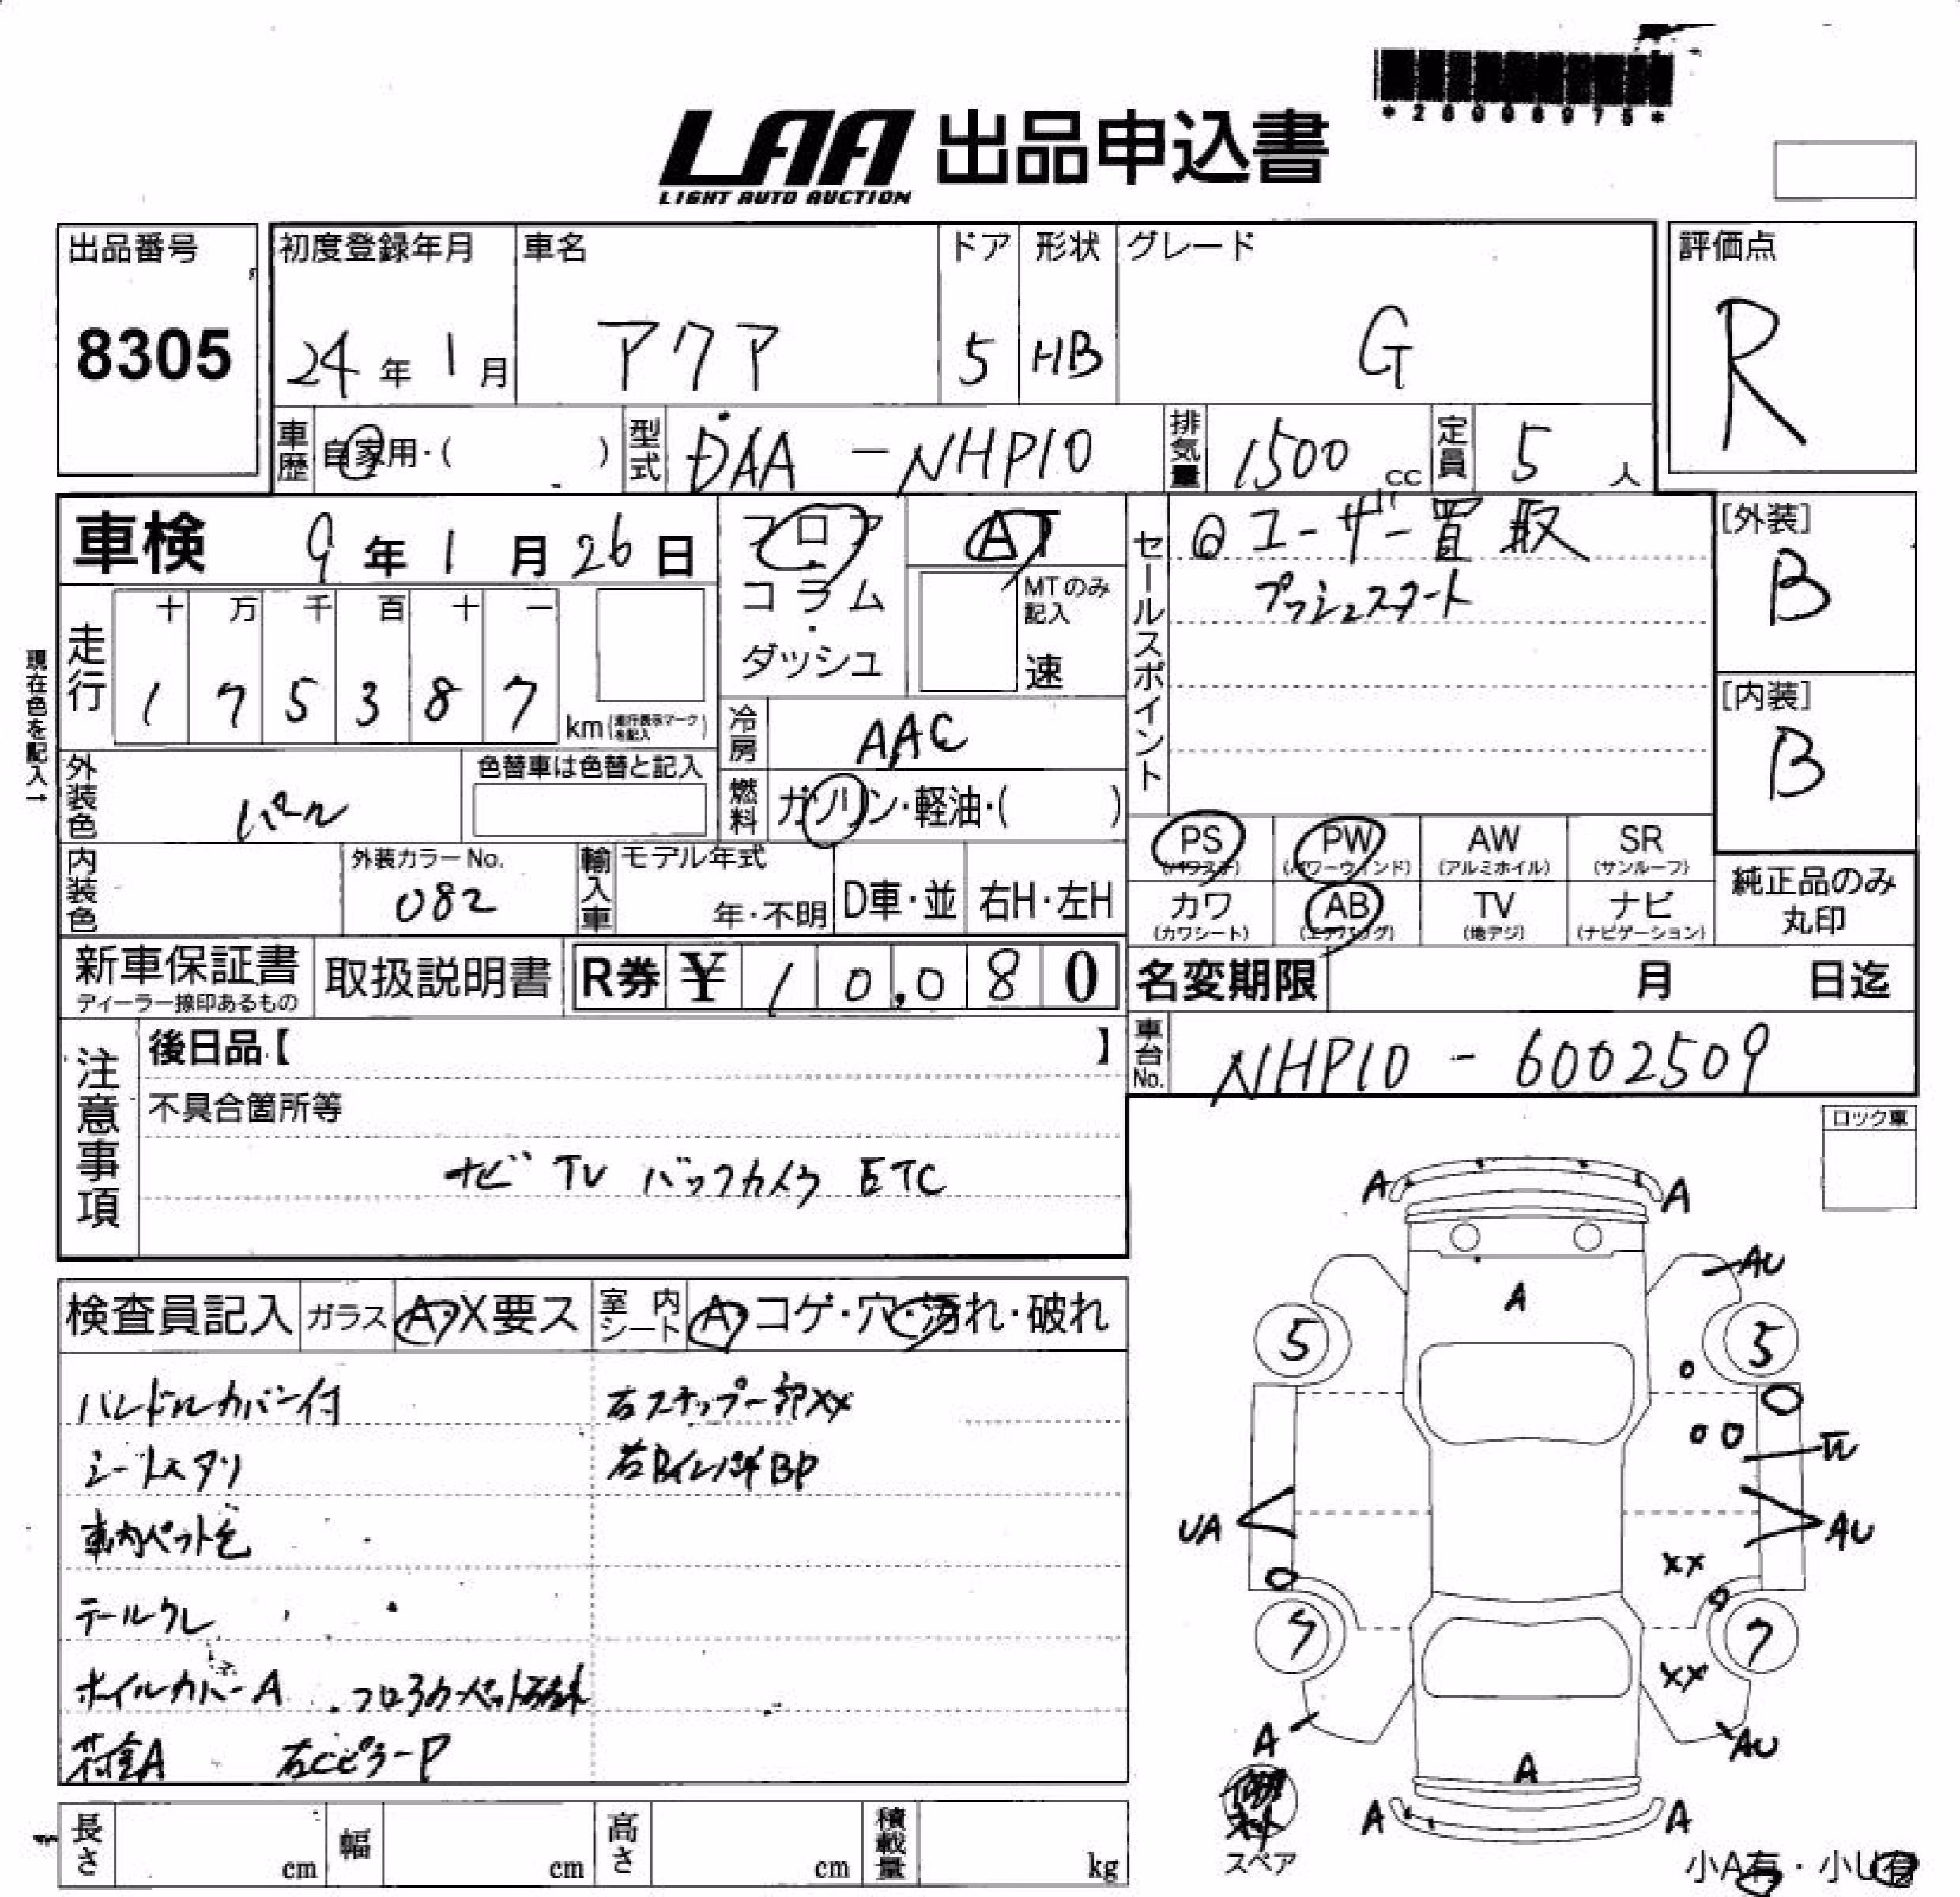 *26008975*
LAA 出品申込書
LIGHT AUTO AUCTION
出品番号
8305
初度登録年月
24年 1月
車名
アクア
ドア
5
形状
HB
グレード
G
評価点
R
車歴
自家用・( )
型式
DAA - NHP10
排気量
1500 cc
定員
5 人
車検 9年 1月 26日
フロア・コラム・ダッシュ
AT
MTのみ記入
速
セールスポイント
◎ユーザー買取
プッシュスタート
[外装]
B
[内装]
B
現在色を記入→
走行
十 万 千 百 十 一
1 7 5 3 8 7
km(走行表示マークを記入)
冷房
AAC
燃料
ガソリン・軽油・( )
外装色
パール
色替車は色替と記入
内装色
外装カラーNo.
082
輸入車
モデル年式
年・不明
D車・並
右H・左H
PS
(パワステ)
PW
(パワーウィンド)
AW
(アルミホイル)
SR
(サンルーフ)
カワ
(カワシート)
AB
(エアバッグ)
TV
(地デジ)
ナビ
(ナビゲーション)
純正品のみ丸印
新車保証書
ディーラー捺印あるもの
取扱説明書
R券 ¥ 10,080
名変期限 月 日迄
車台No.
NHP10 - 6002509
注意事項
後日品【 】
不具合箇所等
ナビ TV バックカメラ ETC
ロック車
検査員記入
ガラス
A・X要ス
室内シート
A・コゲ・穴・汚れ・破れ
ハンドルカバー付
シートスタリ
車内ペット毛
テールクレ
ホイルカバーA フロアカーペット破れ
荷室A 右CピラーP
右ステップ一部XX
右BインパネBP
A A
AU
A
5 5
TL
UA AU
XX
7 7
XX
A AU
A
A A
スペア
小A有・小U有
長さ cm
幅 cm
高さ cm
積載量 kg